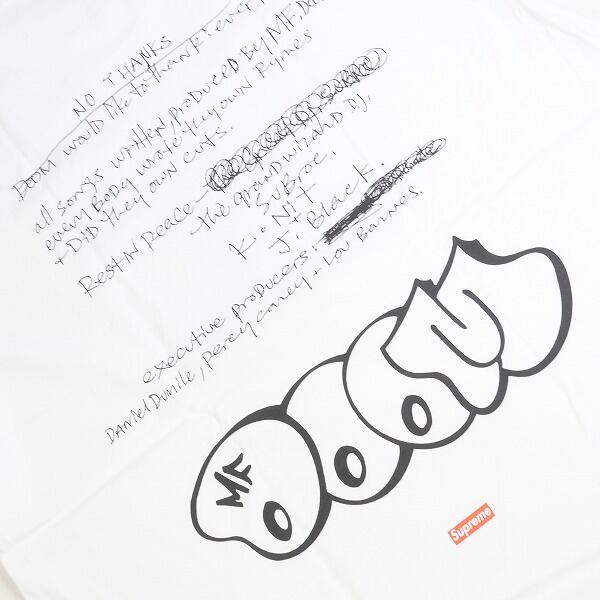 NO THANKS
DOOM would like to thank: every
all songs written, produced By MF. Do
every Body wrote they own Rymes
+ DiD they own cuts.
Rest N peace -
the grand wizard DJ.
SuBroc,
K. NiT
J. Black.
executive producers:
DANiel Dumile, percy carey + Lou Barnes.
MF
DOOM
Supreme